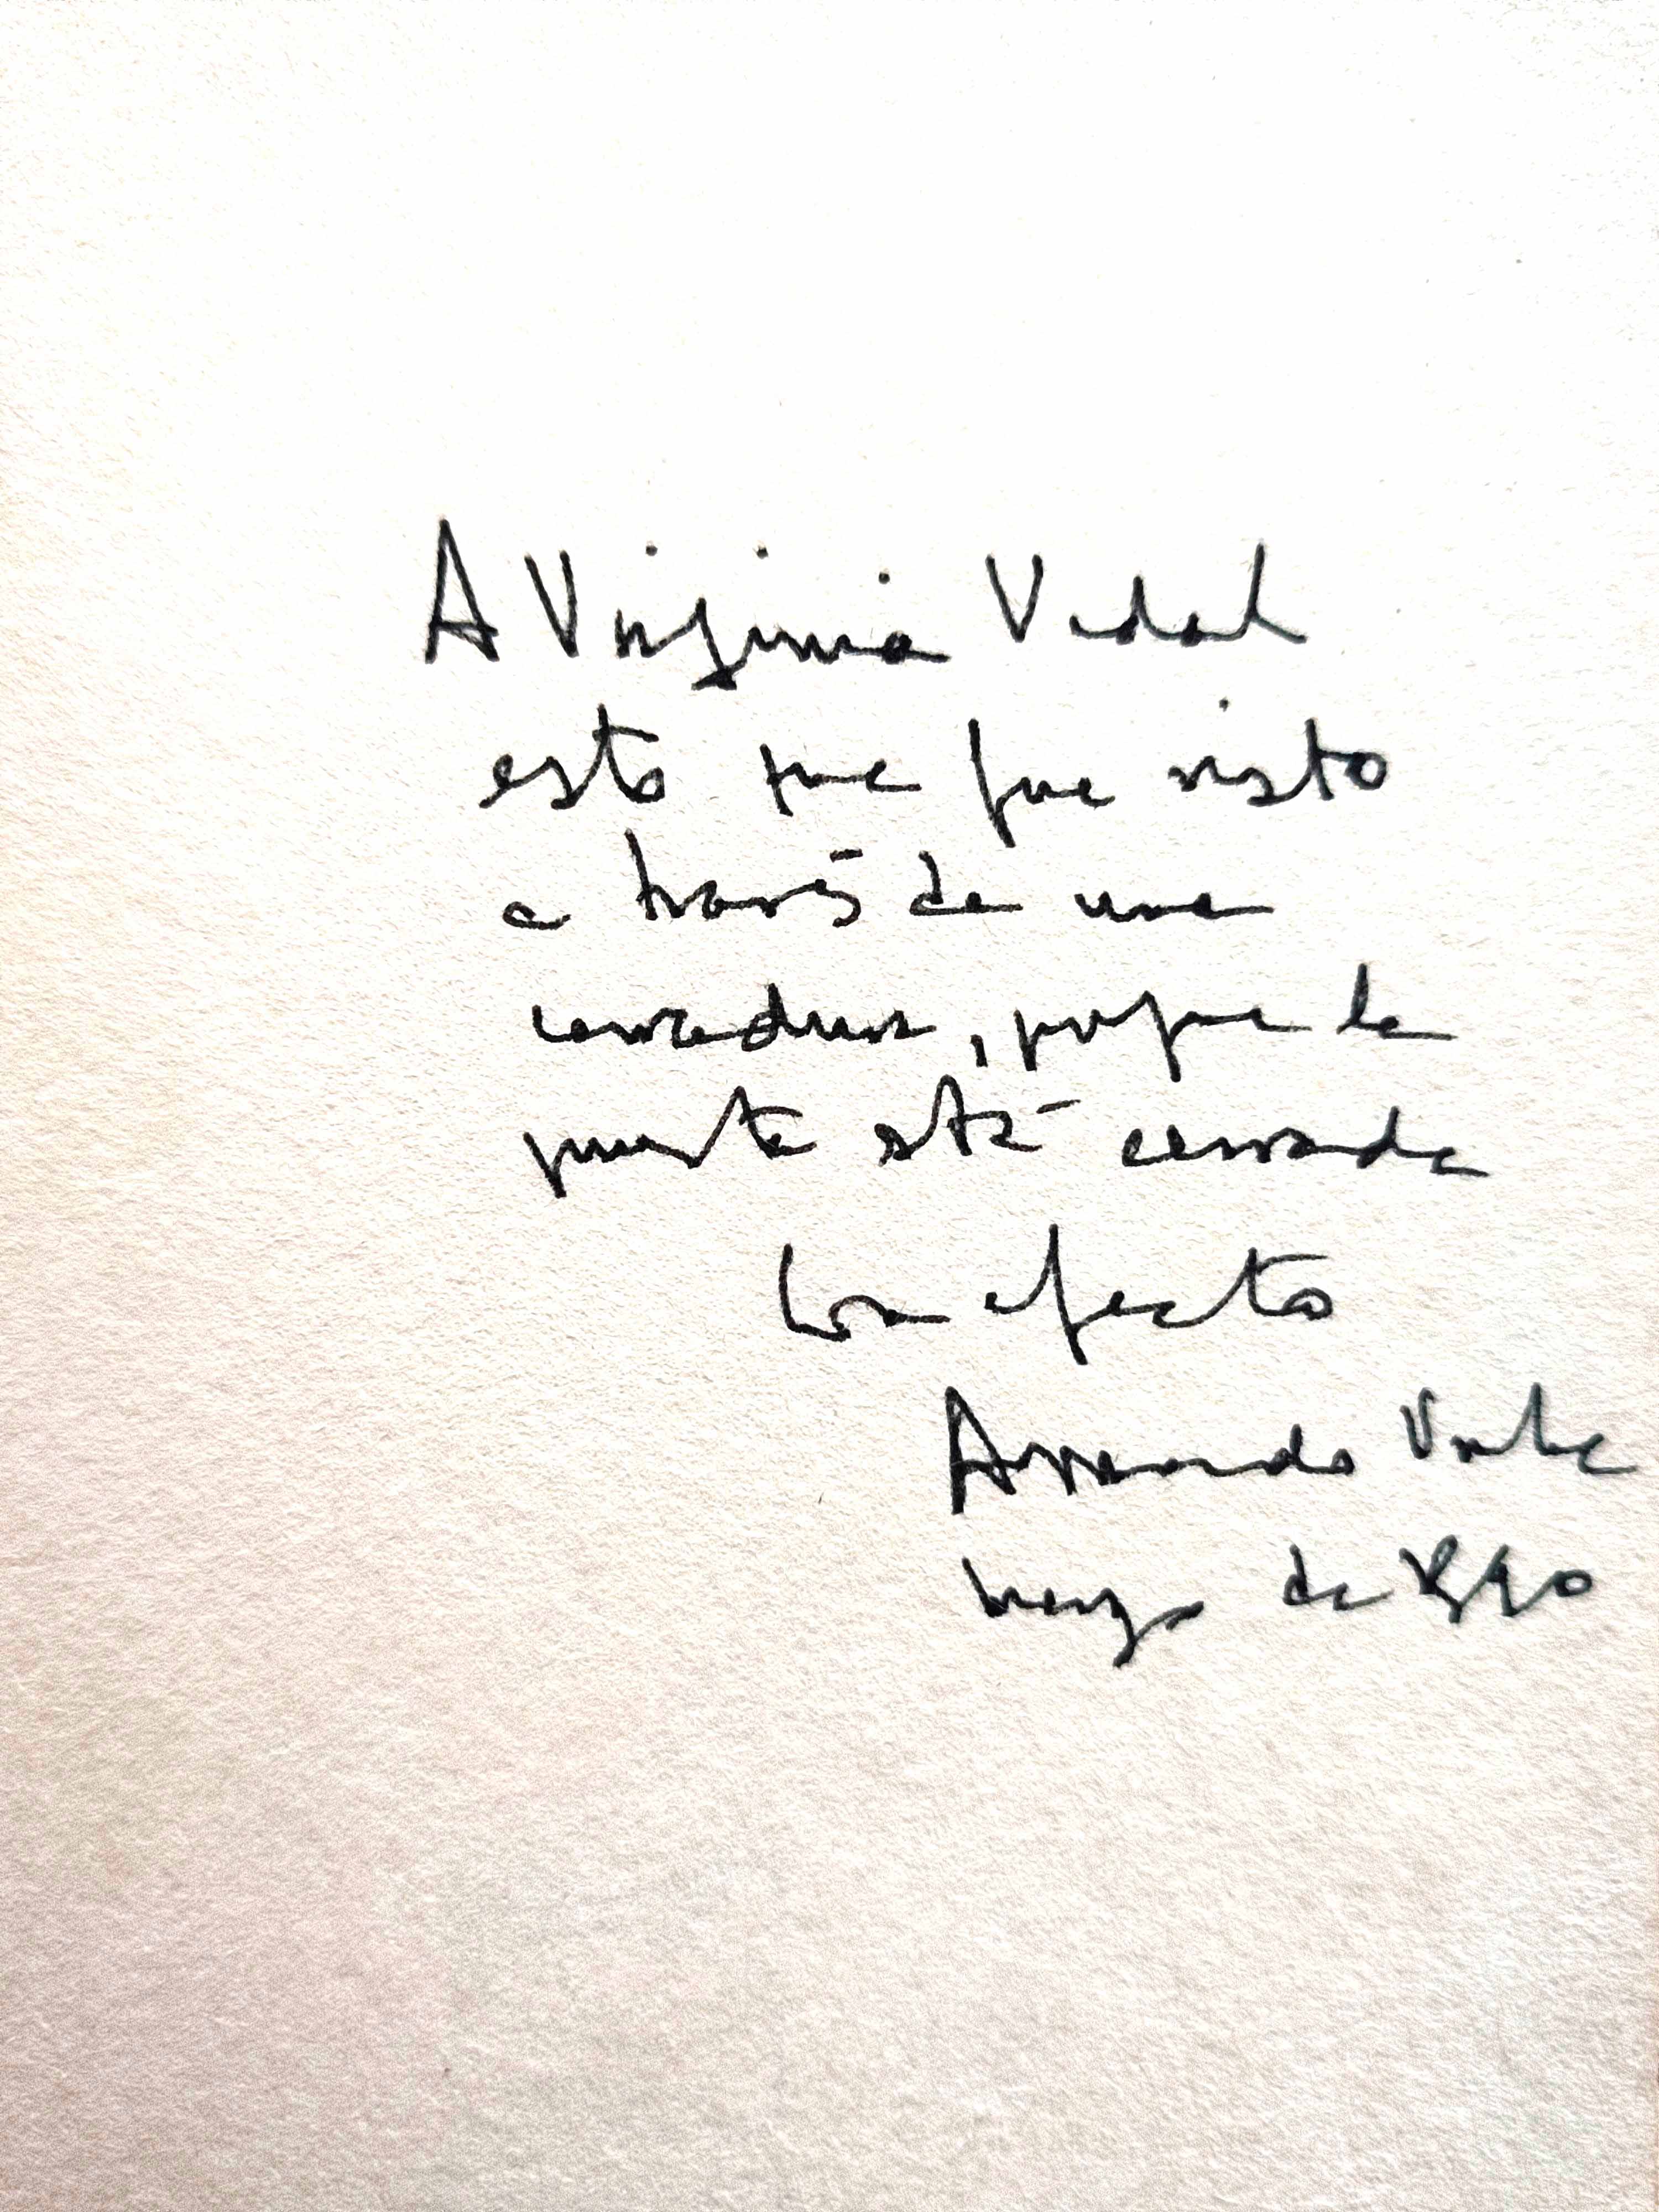 A Virginia Vidal
esto que fue visto
a través de una
cerradura, porque la
puerta está cerrada
Con afecto
Armando Uribe
marzo de 1990